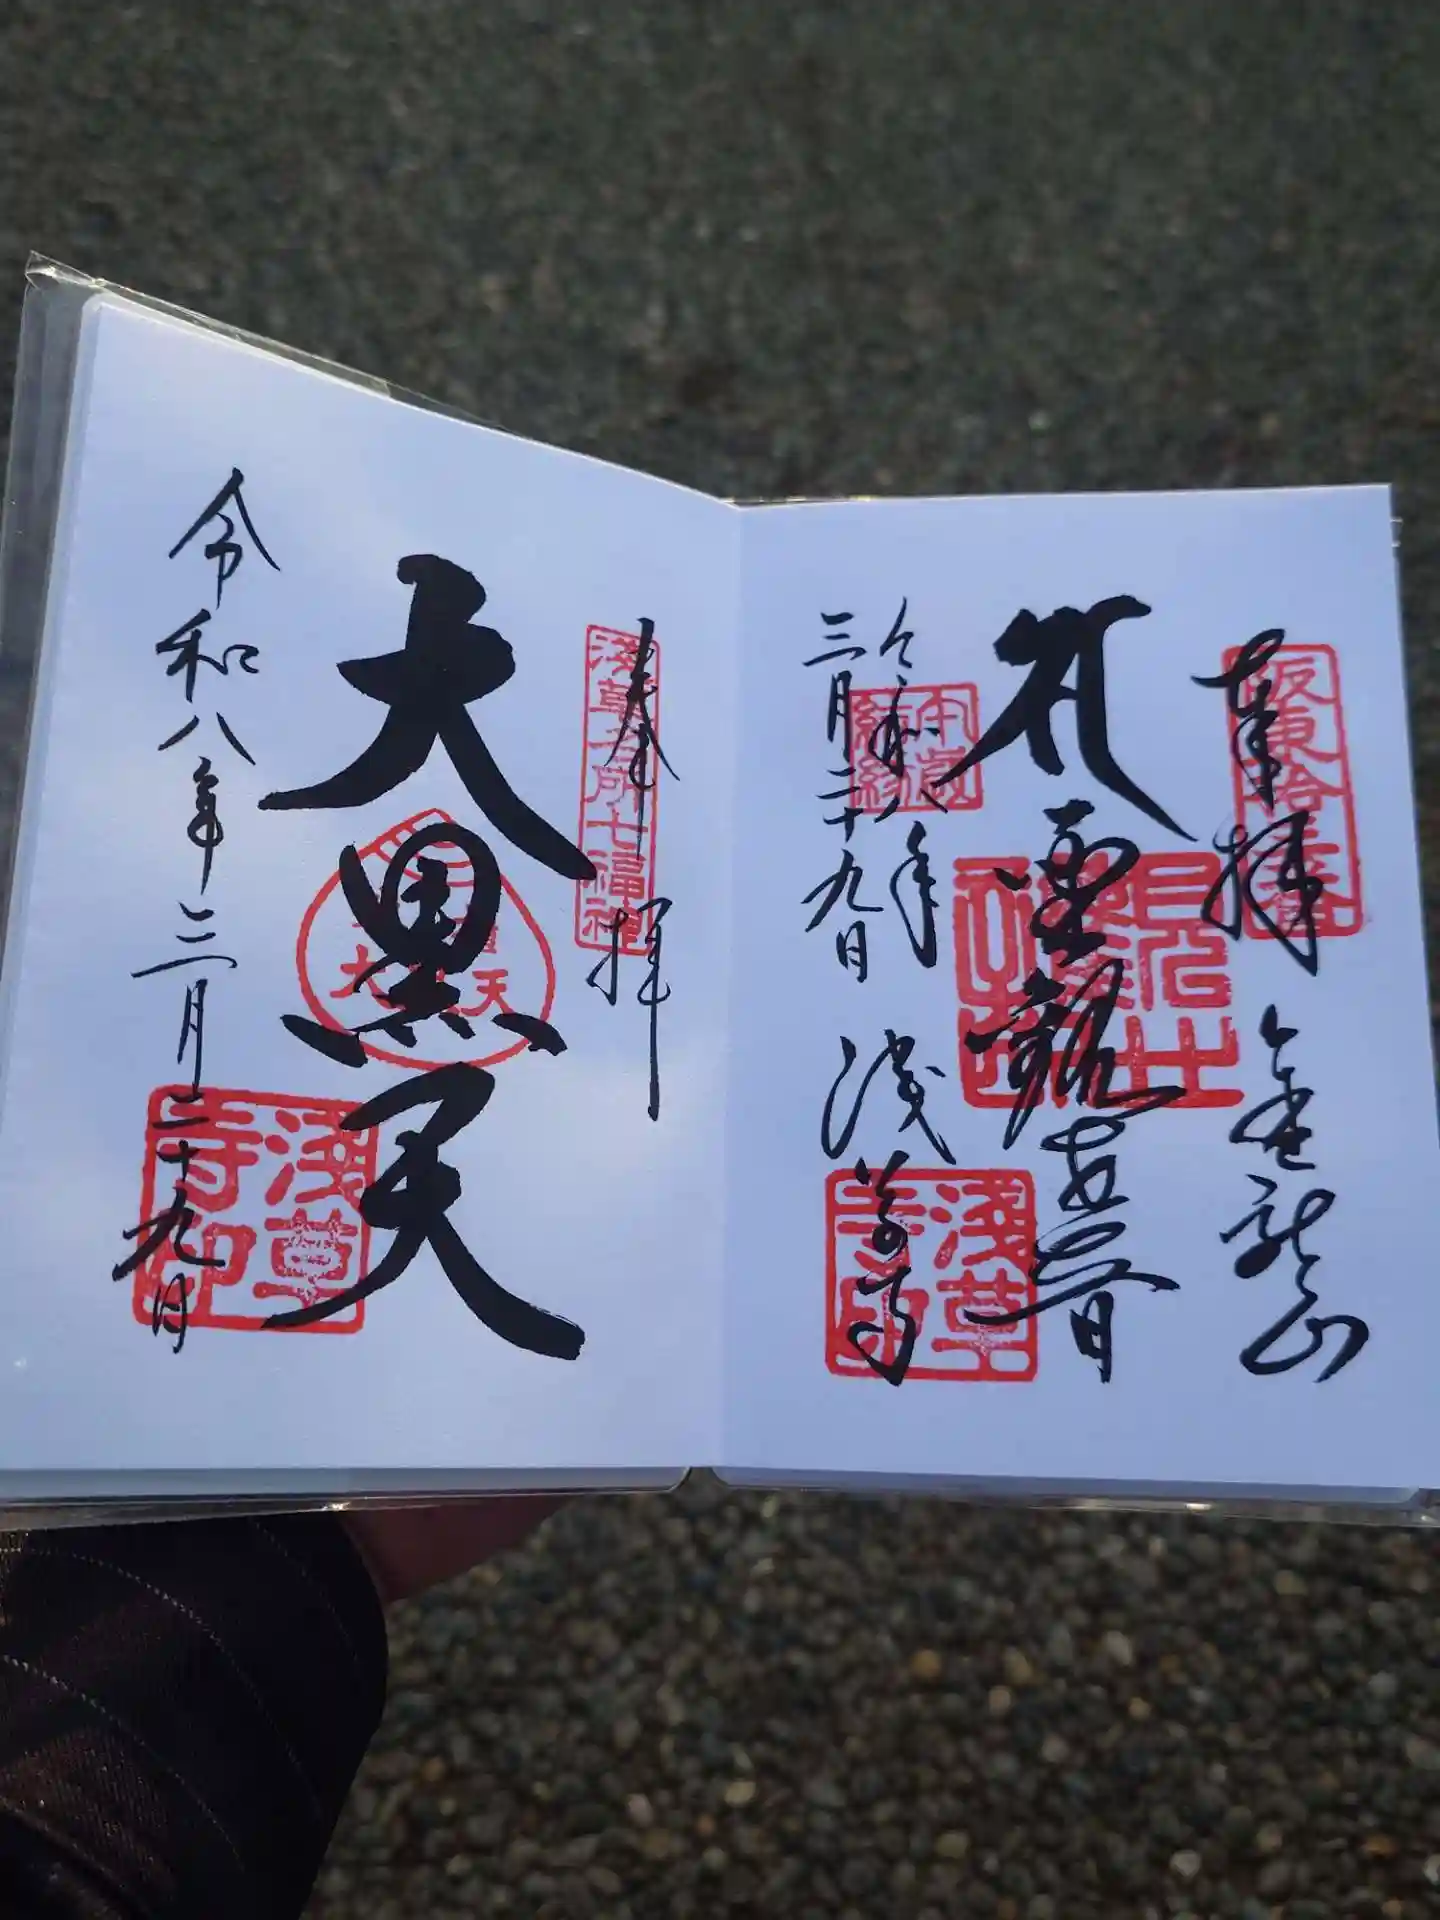 奉拝
金龍山
坂東拾三番
聖観世音
令和八年
三月二十九日
浅草寺
浅草寺印
奉拝
浅草名所七福神
大黒天
令和八年三月二十九日
浅草寺印